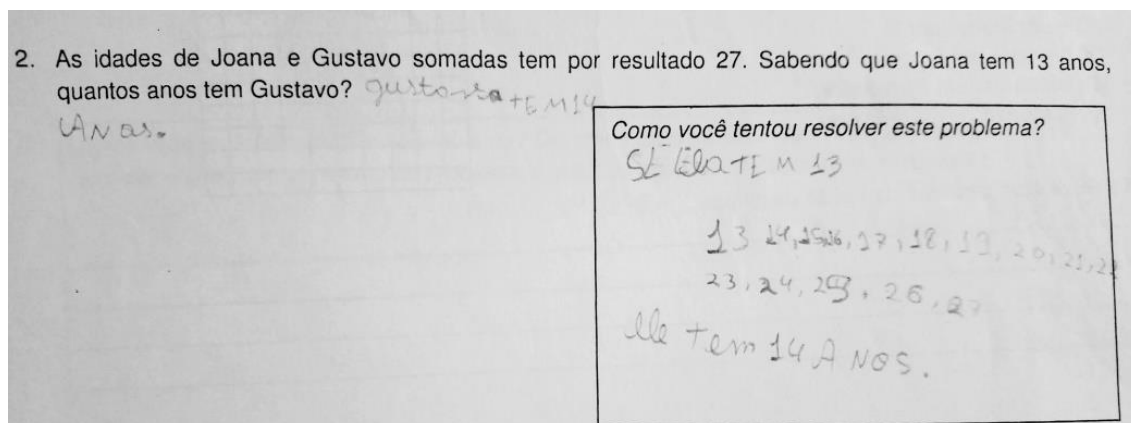 2. As idades de Joana e Gustavo somadas tem por resultado 27. Sabendo que Joana tem 13 anos,
quantos anos tem Gustavo? TEM 14
ANos.
Como você tentou resolver este problema?
SE Ela TEM 13
13 14, 15, 16, 17, 18, 19, 20, 21, 22
23, 24, 25, 26, 27
ele tem 14 A NOS.